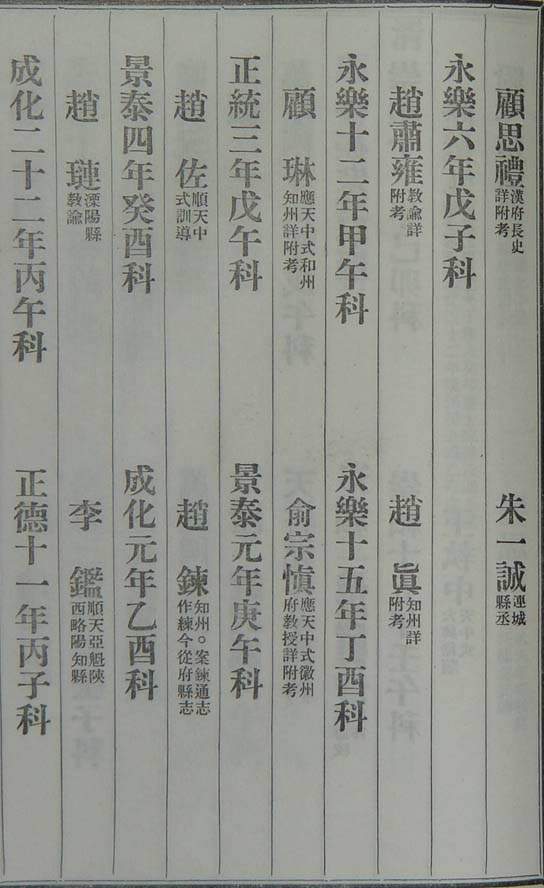 顧思禮漢府長史詳附考
朱一誠連城縣丞
永樂六年戊子科
趙肅雍教諭詳附考
趙眞知州詳附考
永樂十二年甲午科
永樂十五年丁酉科
顧琳應天中式和州知州詳附考
俞宗愼應天中式徽州府教授詳附考
正統三年戊午科
景泰元年庚午科
趙佐順天中式訓導
趙鍊知州○案鍊通志作練今從府縣志
景泰四年癸酉科
成化元年乙酉科
趙璉溧陽縣教諭
李鑑順天亞魁陝西略陽知縣
成化二十二年丙午科
正德十一年丙子科